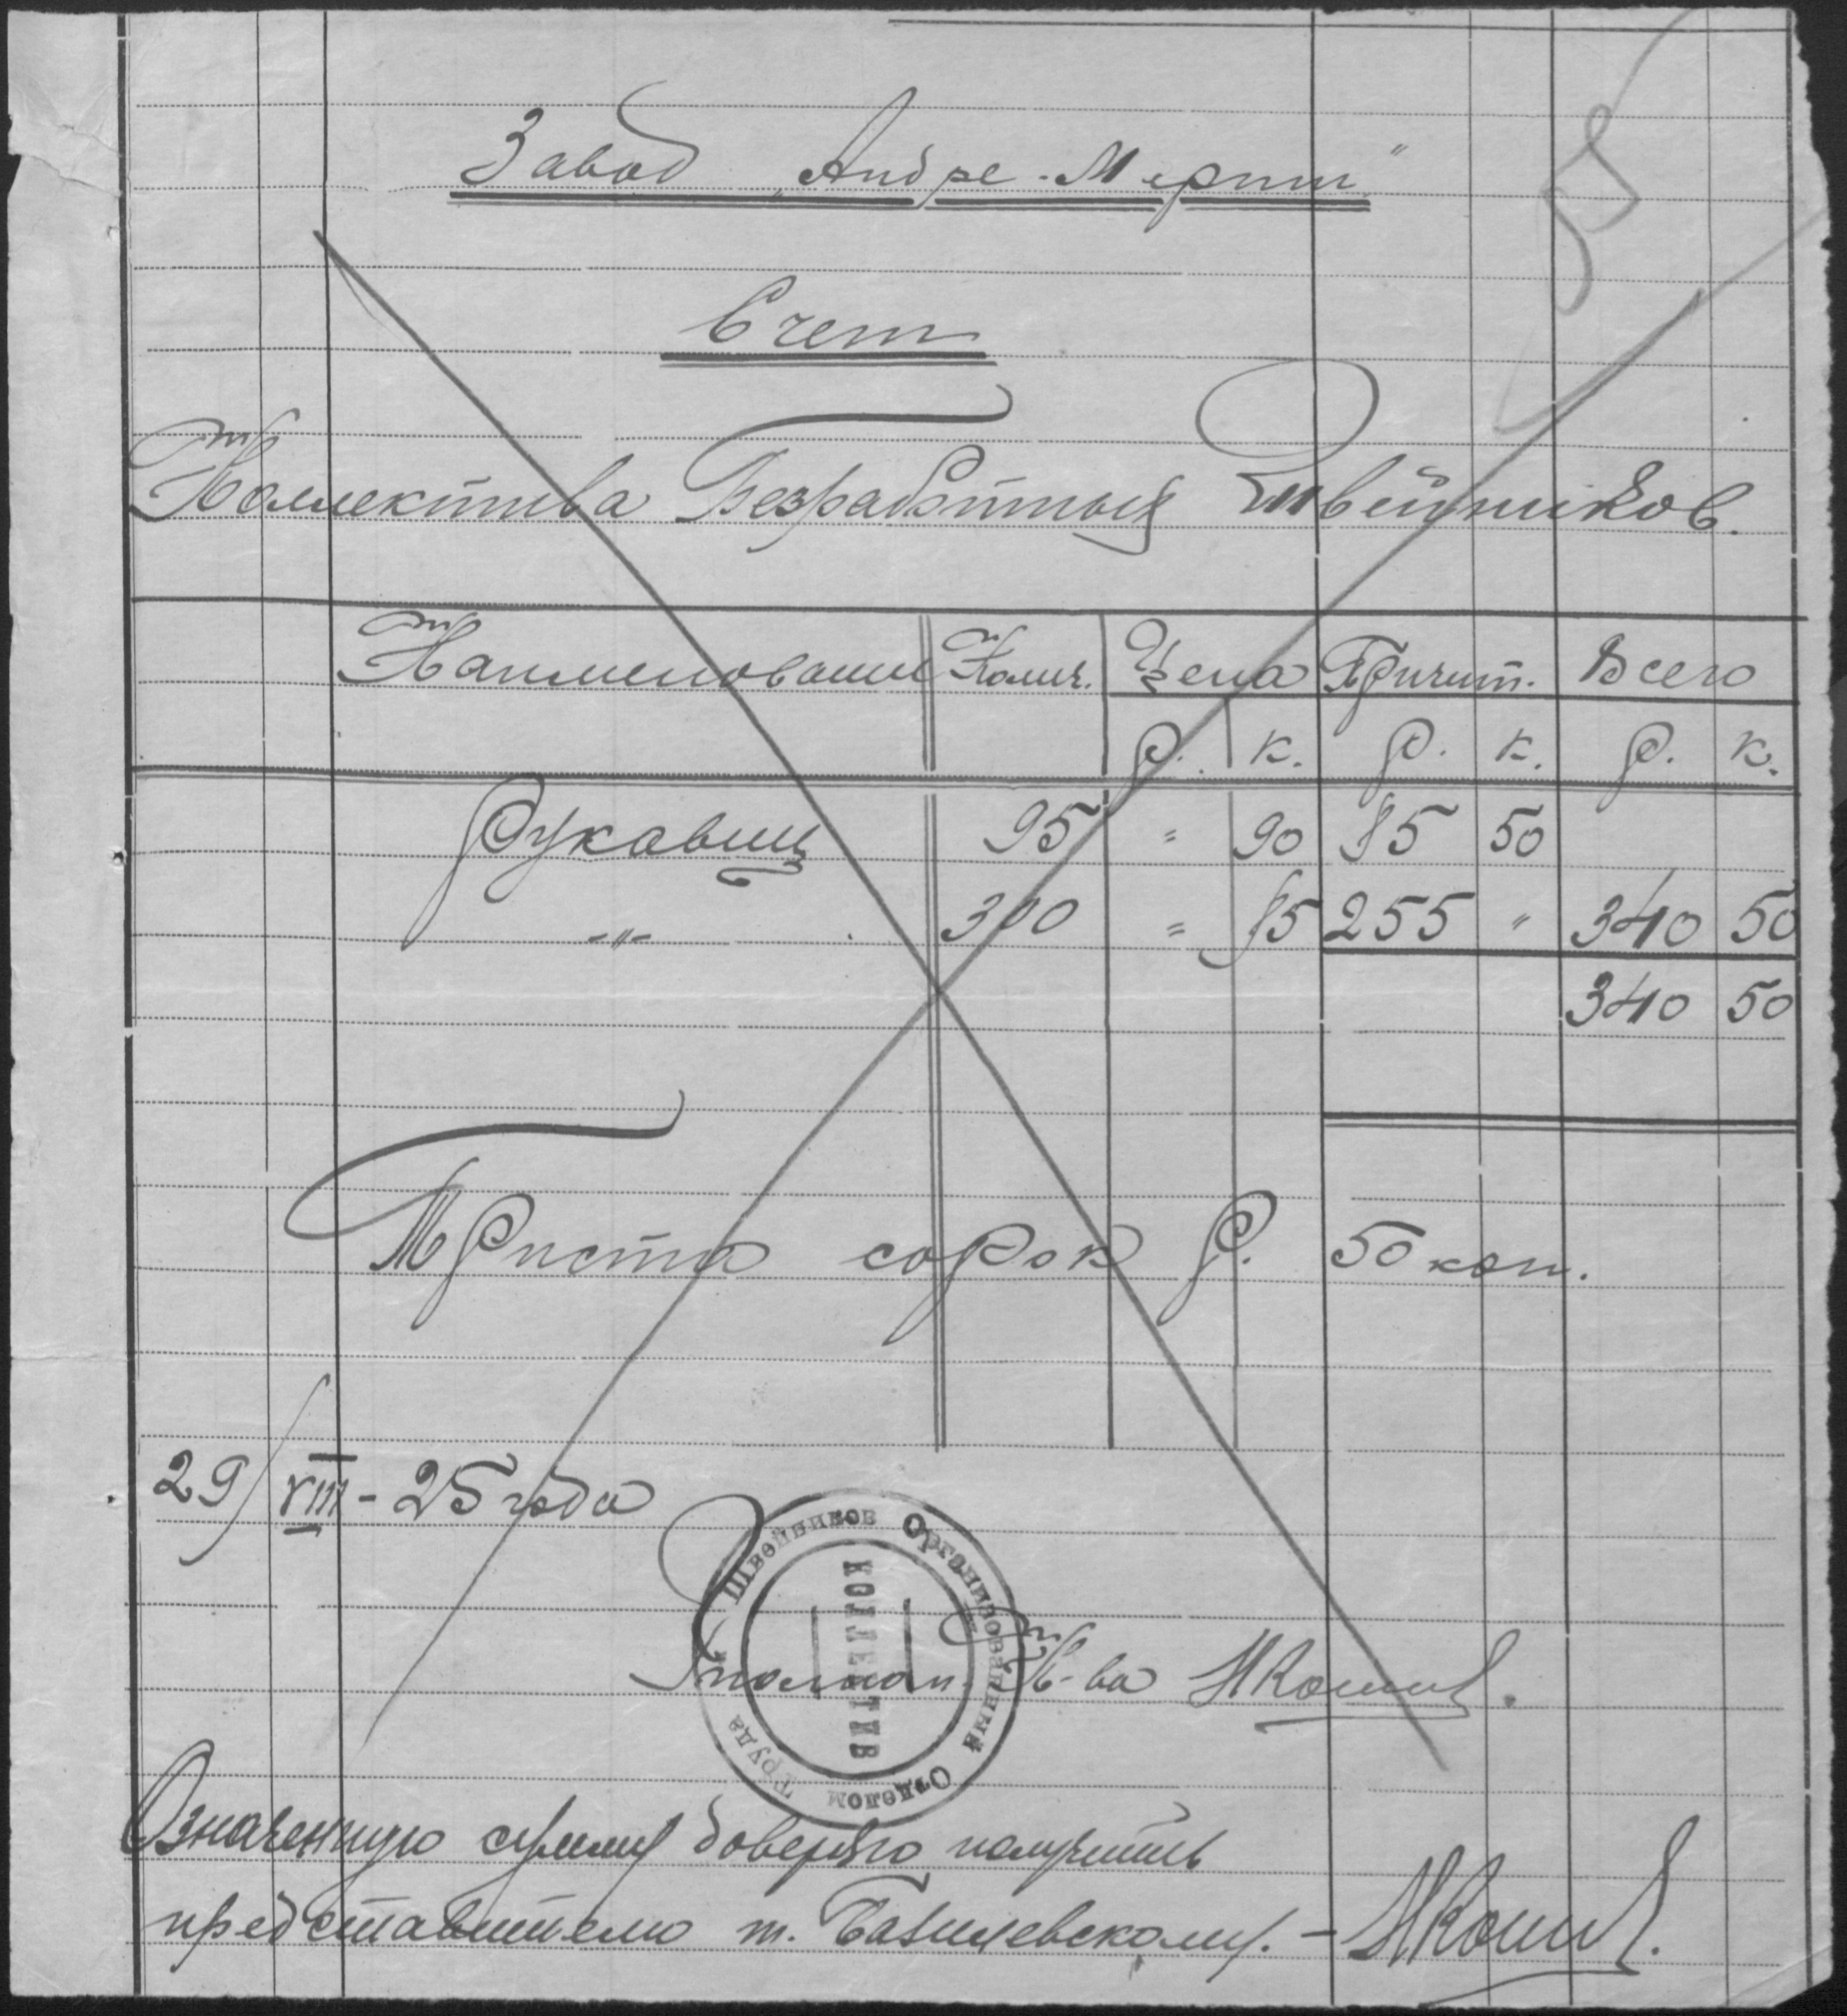 55
Завод „Андре-Марти"
Счет
Коллектива Безработных Швейников.
Наименование Колич. Цена Причит. Всего
р. к. р. к. р. к.
Рукавиц 95 " 90 85 50
-"- 300 " 85 255 " 340 50
340 50
Триста сорок р. 50 коп.
29/VIII-25 года
Швейников Организованный Отделом Труда
КОЛЛЕКТИВ
Уполном. К-ва
Означенную сумму доверяю получить
представителю т. Базилевскому. -